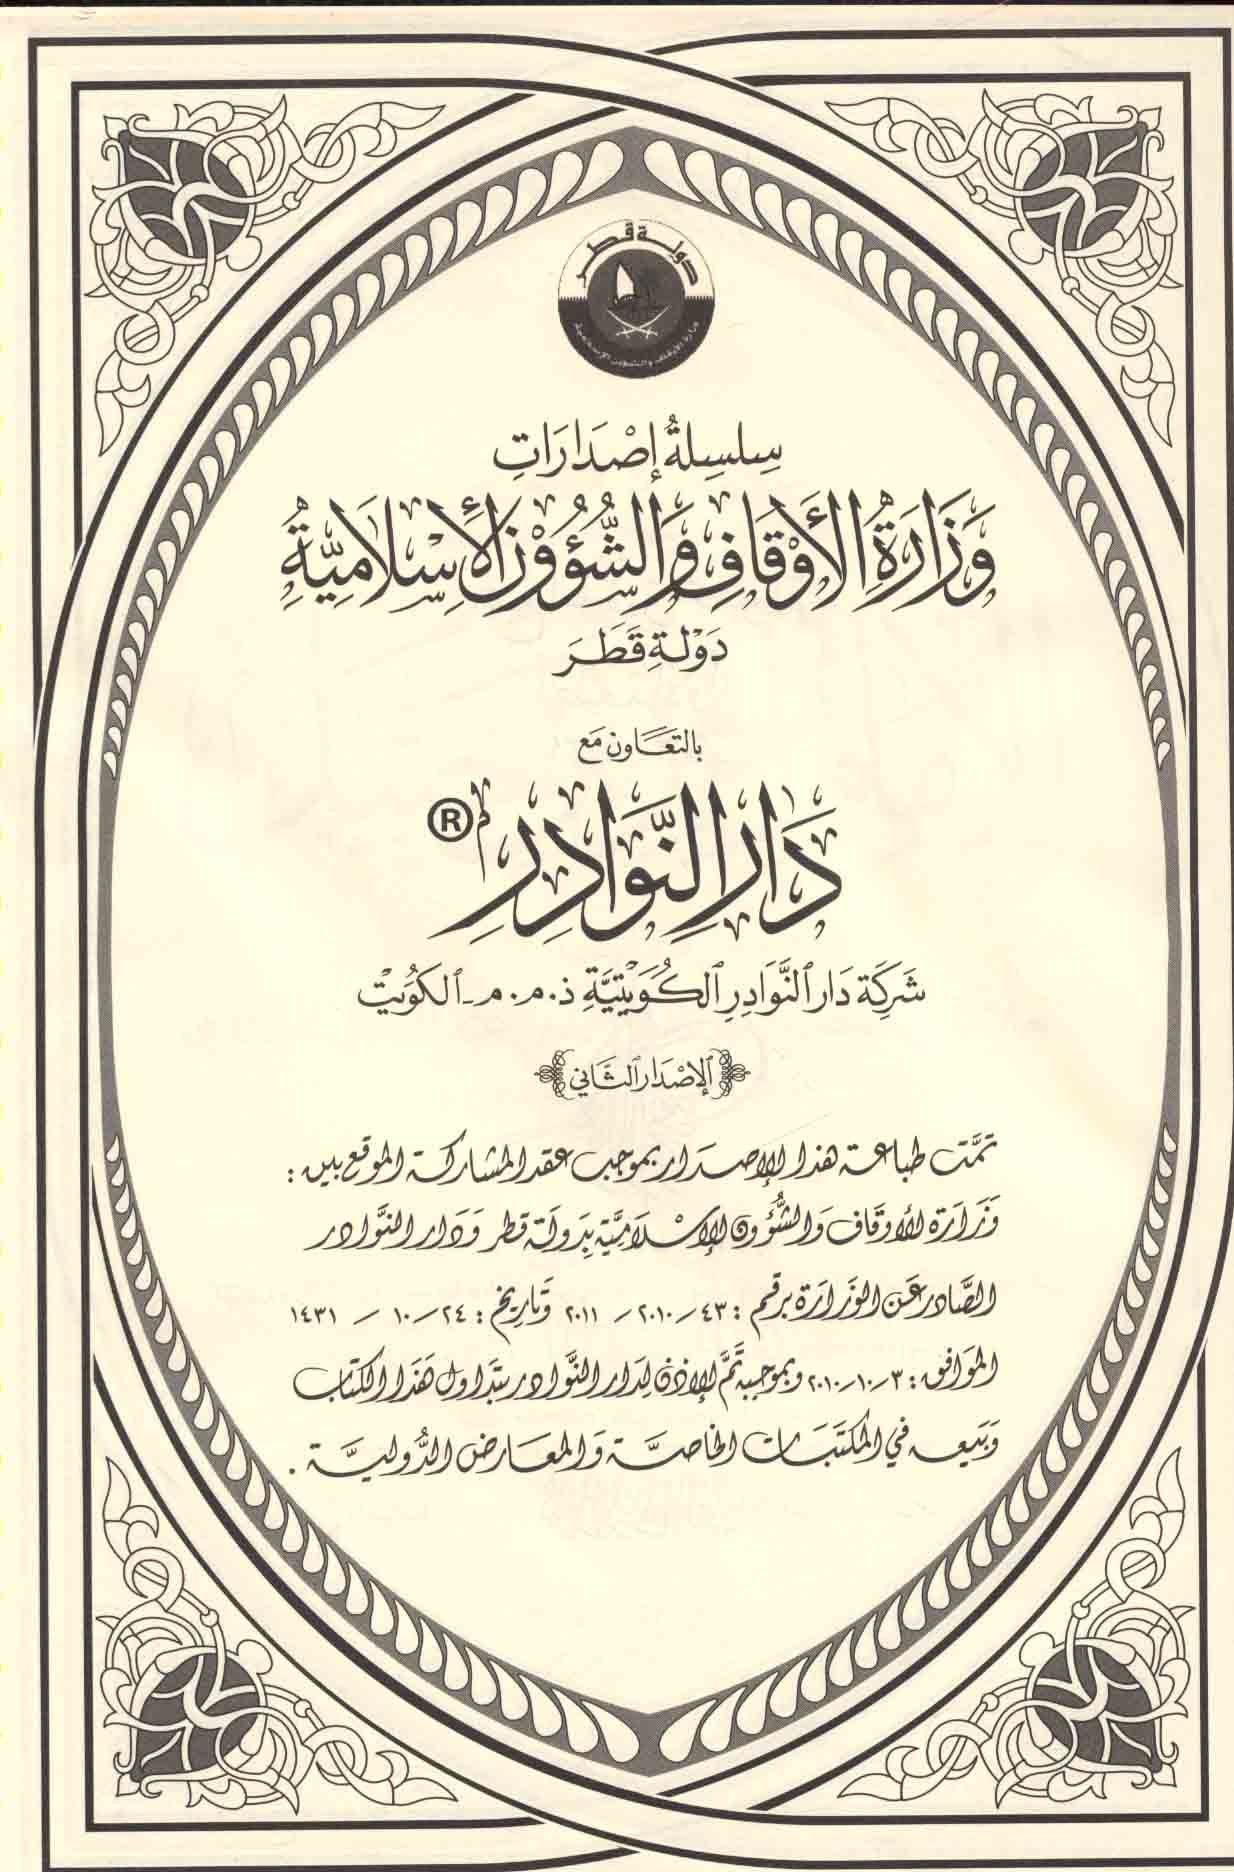 دولة قطر
وزارة الأوقاف والشؤون الإسلامية
سِلسِلةُ إصْدَارَاتِ
وَزَارَةُ الأَوْقَافِ وَالشُّؤُوْنِ الإِسْلَامِيَّةِ
دَوْلَةِ قَطَرَ
بالتعَاون مَع
دَارُ النَّوَادِرِ م ®
شَرِكَة دَار النَّوَادِرِ الكُوَيْتِيَّةِ ذ.م.م-الكُوَيتْ
الإصْدَار الثَّاني
تمَّت طباعة هذا الإصدار بموجب عقد المشاركة الموقع بين :
وَزَارَة الأوقاف وَالشُّؤُون الإسْلاميَّة بِدَولَة قطر وَدَار النَّوادر
الصَّادر عَن الوَزَارَة برقم : ٤٣ / ٢٠١٠ / ٢٠١١ وَتاريخ : ٢٤ / ١٠ / ١٤٣١
الموَافق : ٣ / ١٠ / ٢٠١٠ وبموجبه تَمَّ الإذن لِدَار النَّوادر بتدَاول هَذَا الكتَاب
وَبَيعه في المكتبَات الخاصَّة وَالمعَارض الدُّوليَّة .